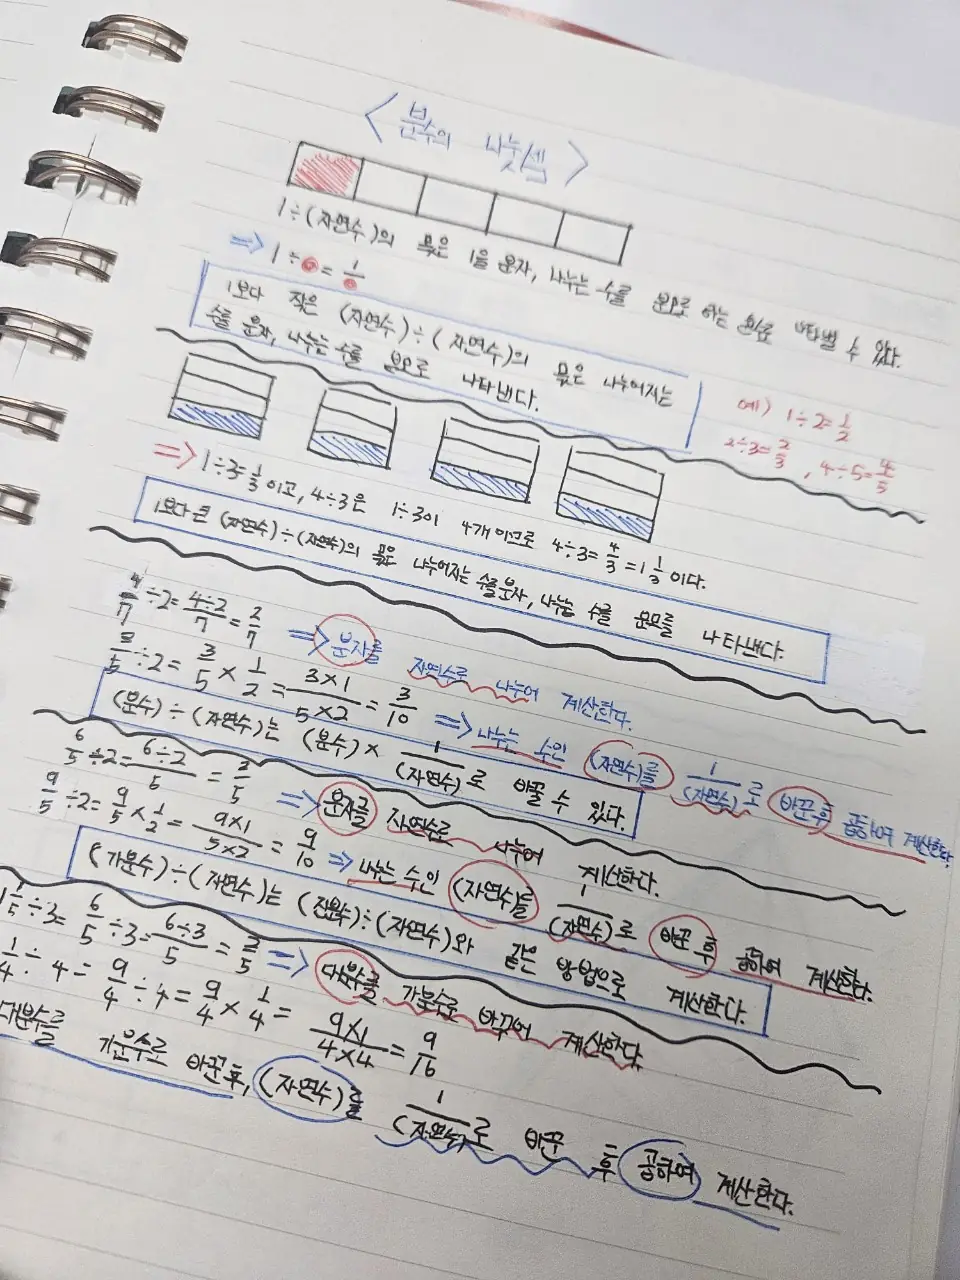 < 분수의 나눗셈 >
1÷(자연수)의 몫은 1을 분자, 나누는 수를 분모로 하는 분수로 나타낼 수 있다.
⇒ 1÷●=1/●
1보다 작은 (자연수)÷(자연수)의 몫은 나누어지는
수를 분자, 나누는 수를 분모로 나타낸다.
예) 1÷2=1/2
2÷3=2/3, 4÷5=4/5
⇒ 1÷3=1/3이고, 4÷3은 1÷3이 4개이므로 4÷3=4/3=1 1/3이다.
1보다 큰 (자연수)÷(자연수)의 몫은 나누어지는 수를 분자, 나누는 수를 분모를 나타낸다.
4/7÷2=4÷2/7=2/7 ⇒ 분자를 자연수로 나누어 계산한다.
3/5÷2=3/5×1/2=3×1/5×2=3/10 ⇒ 나누는 수인 (자연수)를 1/(자연수)로 바꾼 후 곱하여 계산한다.
(분수)÷(자연수)는 (분수)×1/(자연수)로 바꿀 수 있다.
6/5÷2=6÷2/5=3/5 ⇒ 분자를 자연수로 나누어 계산한다.
9/5÷2=9/5×1/2=9×1/5×2=9/10 ⇒ 나누는 수인 (자연수)를 1/(자연수)로 바꾼 후 곱하여 계산한다.
(가분수)÷(자연수)는 (진분수)÷(자연수)와 같은 방법으로 계산한다.
1 1/5÷3=6/5÷3=6÷3/5=2/5 ⇒ 대분수를 가분수로 바꾸어 계산한다.
1/4÷4=9/4÷4=9/4×1/4=9×1/4×4=9/16
대분수를 가분수로 바꾼 후, (자연수)를 1/(자연수)로 바꾼 후 곱하여 계산한다.